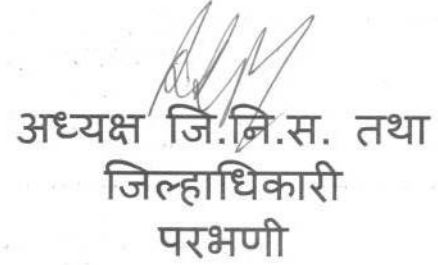 अध्यक्ष जि.नि.स. तथा
जिल्हाधिकारी
परभणी